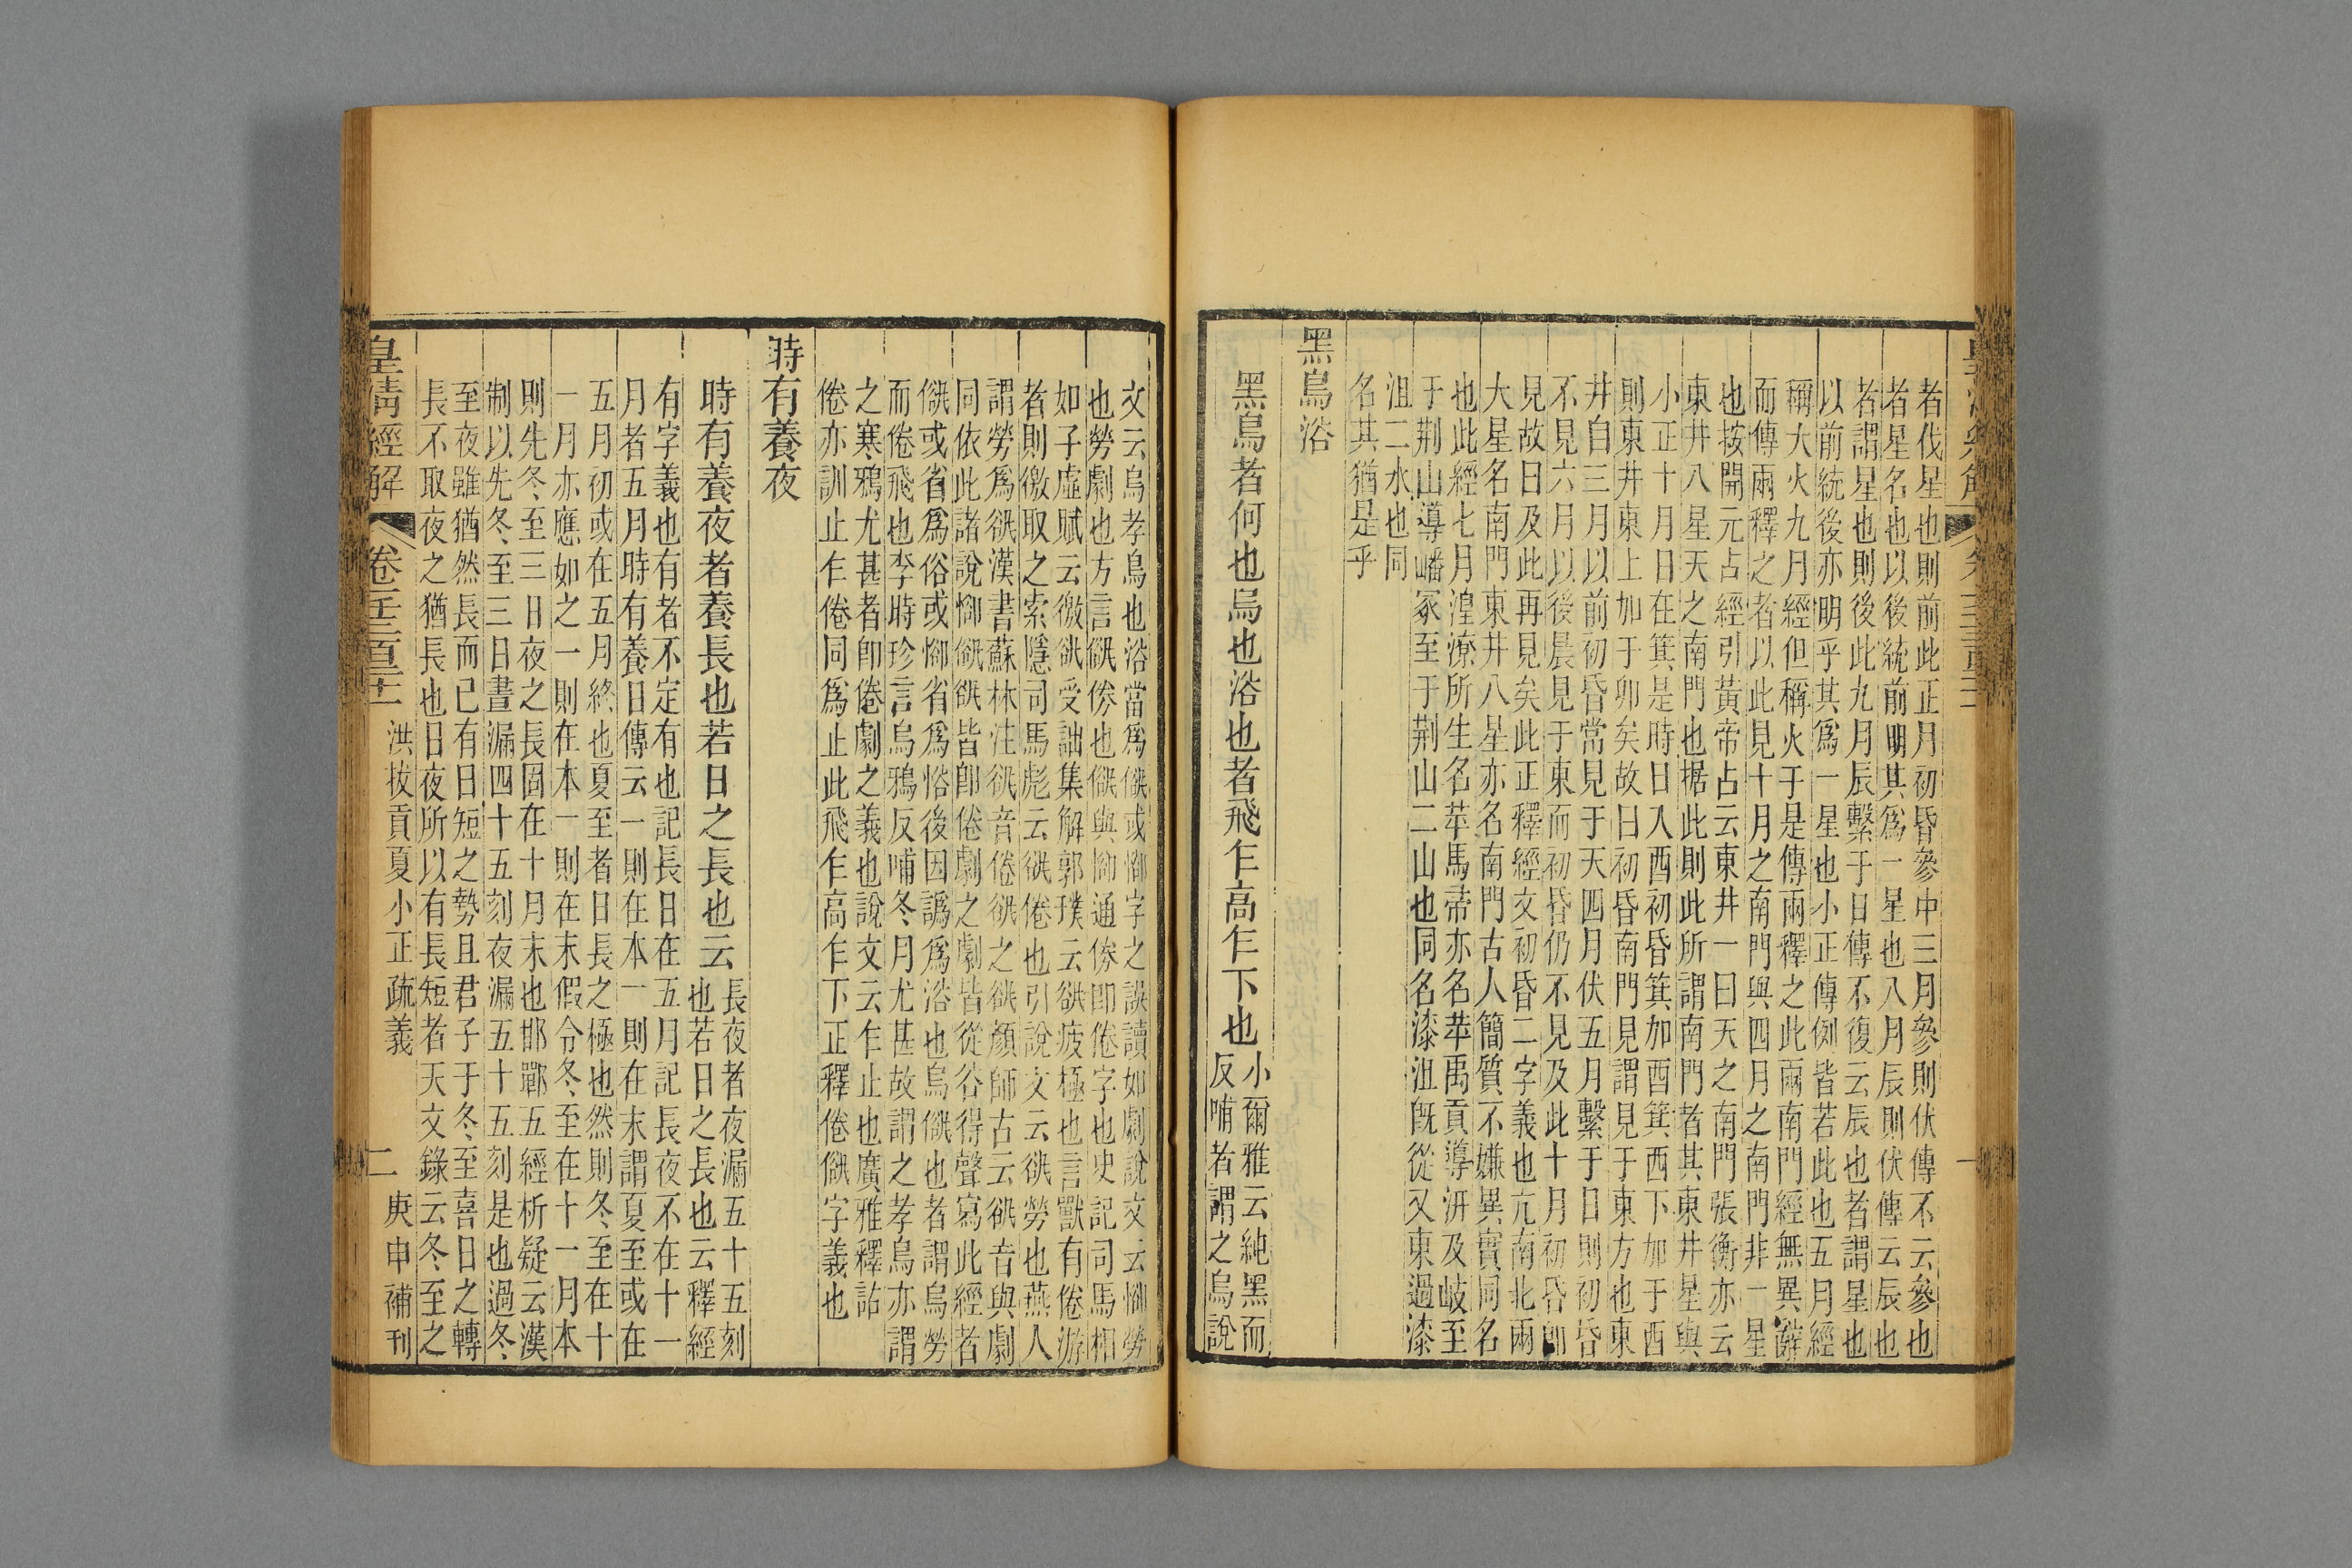 者伐星也則前此正月初昏參中三月參則伏傳不云參也
者星名也以後統前明其爲一星也八月辰則伏傳云辰也
者謂星也則後此九月辰繫于日傳不復云辰也者謂星也
以前統後亦明乎其爲一星也小正傳例皆若此也五月經
稱大火九月經但稱火于是傳兩釋之此兩南門經無異辭
而傳兩釋之者以此見十月之南門與四月之南門非一星
也按開元占經引黃帝占云東井一曰天之南門張衡亦云
東井八星天之南門也据此則此所謂南門者其東井星與
小正十月日在箕是時日入酉初昏箕加酉箕西下加于酉
則東井東上加于卯矣故曰初昏南門見謂見于東方也東
井自三月以前初昏常見于天四月伏五月繫于日則初昏
不見六月以後晨見于東而初昏仍不見及此十月初昏卽
見故曰及此再見矣此正釋經文初昏二字義也亢南北兩
大星名南門東井八星亦名南門古人簡質不嫌異實同名
也此經七月湟潦所生名苹馬帚亦名苹禹貢導汧及岐至
于荆山導嶓冢至于荆山二山也同名漆沮旣從又東過漆
沮二水也同
名其猶是乎
黑鳥浴
黑鳥者何也烏也浴也者飛乍高乍下也
小爾雅云純黑而
反哺者謂之烏說
文云烏孝鳥也浴當爲㒭或㥜字之誤讀如劇說文云㥜勞
也勞劇也方言㕁㑊也㒭與㥜通㑊卽倦字也史記司馬相
如子虛賦云徼㕁受詘集解郭璞云㕁疲極也言獸有倦游
者則徼取之索隱司馬彪云㕁倦也引說文云㕁勞也燕人
謂勞爲㕁漢書蘇林注㕁音倦㕁之㕁顏師古云㕁音與劇
同依此諸說㥜㒭㕁皆卽倦劇之劇皆從谷得聲寫此經者
㒭或省爲俗或㥜省爲㤤後因譌爲浴也烏㒭也者謂烏勞
而倦飛也李時珍言烏鴉反哺冬月尤甚故謂之孝鳥亦謂
之寒鴉尤甚者卽倦劇之義也說文云乍止也廣雅釋詁
倦亦訓止乍倦同爲止此飛乍高乍下正釋倦㒭字義也
時有養夜
時有養夜者養長也若日之長也云
長夜者夜漏五十五刻
也若日之長也云釋經
有字義也有者不定有也記長日在五月記長夜不在十一
月者五月時有養日傳云一則在本一則在末謂夏至或在
五月初或在五月終也夏至者日長之極也然則冬至在十
一月亦應如之一則在本一則在末假令冬至在十一月本
則先冬至三日夜之長固在十月末也邯鄲五經析疑云漢
制以先冬至三日晝漏四十五刻夜漏五十五刻是也過冬
至夜雖猶然長而已有日短之勢且君子于冬至喜日之轉
長不取夜之猶長也日夜所以有長短者天文錄云冬至之
皇清經解 卷一千三百三十一 洪拔貢夏小正疏義 二 庚申補刊